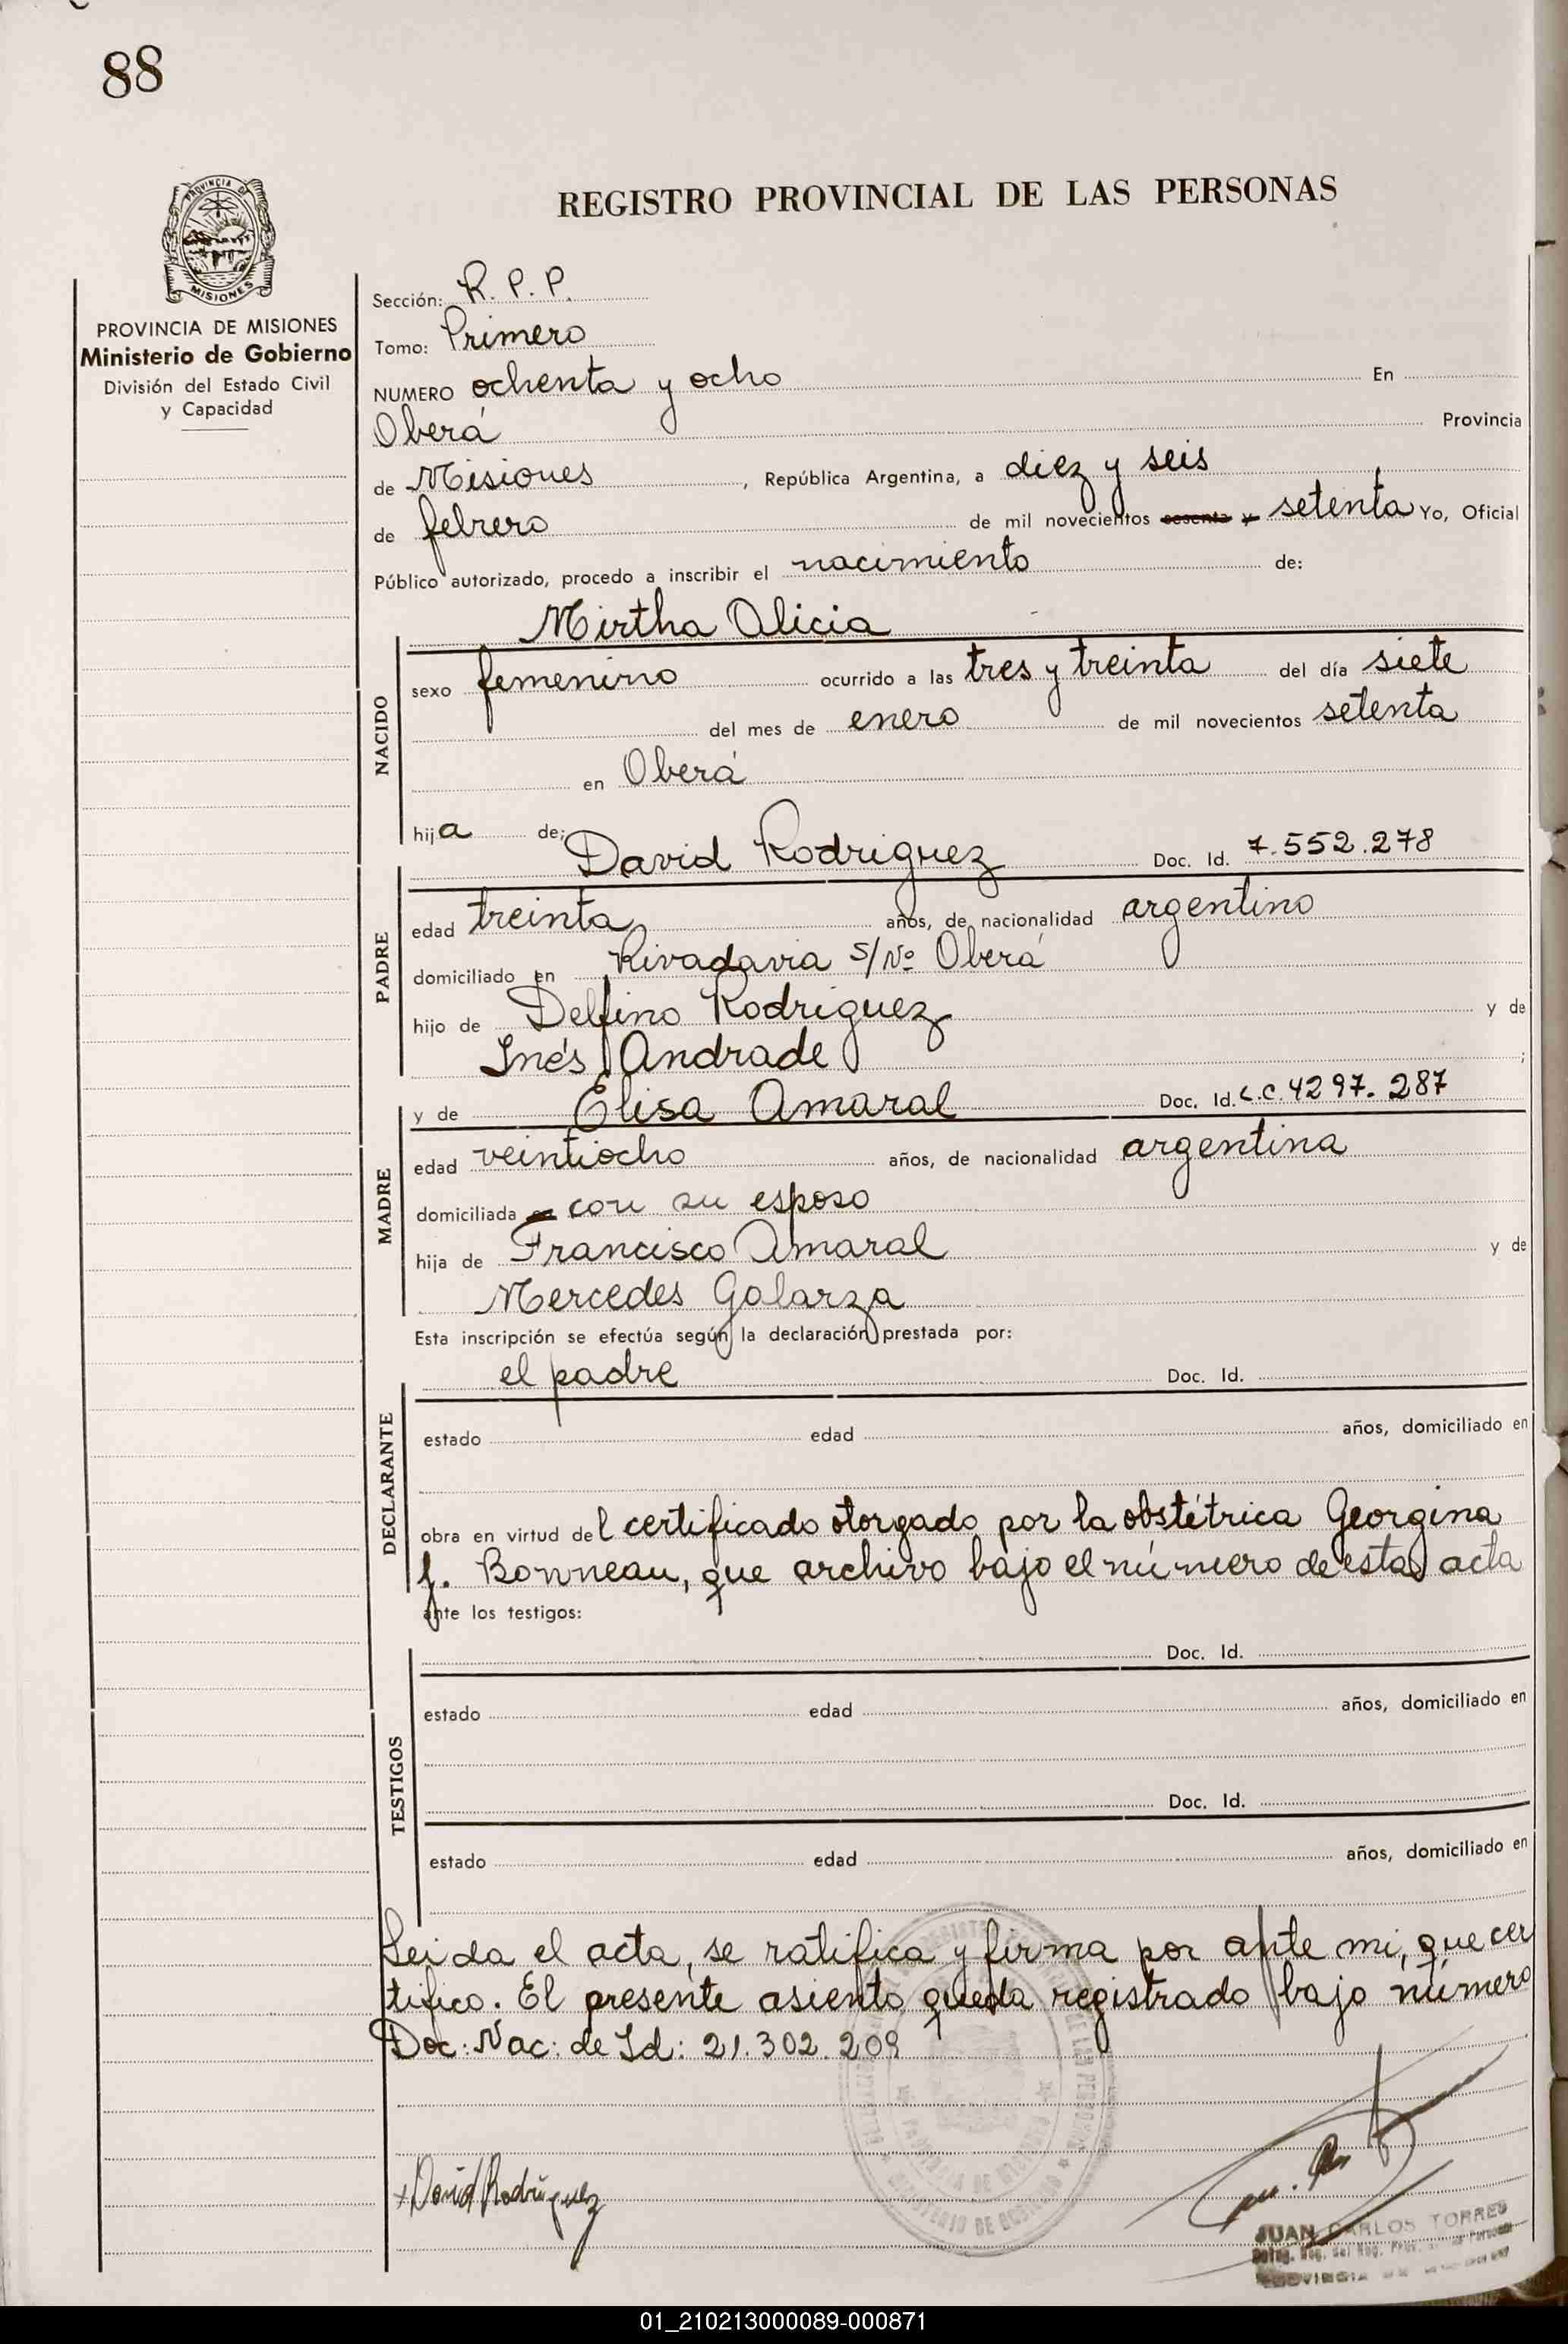 88
REGISTRO PROVINCIAL DE LAS PERSONAS
PROVINCIA DE
MISIONES
PROVINCIA DE MISIONES
Ministerio de Gobierno
División del Estado Civil
y Capacidad
Sección: R. P. P.
Tomo: Primero
NUMERO ochenta y ocho En
Oberá Provincia
de Misiones, República Argentina, a diez y seis
de febrero de mil novecientos sesenta y setenta Yo, Oficial
Público autorizado, procedo a inscribir el nacimiento de:
Mirtha Alicia
NACIDO
sexo femenino ocurrido a las tres y treinta del día siete
del mes de enero de mil novecientos setenta
en Oberá
hija de: David Rodriguez Doc. Id. 7.552.278
PADRE
edad treinta años, de nacionalidad argentino
domiciliado en Rivadavia s/Nº Oberá
hijo de Delfino Rodriguez y de
Inés Andrade ;
y de Elisa Amaral Doc. Id. L.C. 4297.287
MADRE
edad veintiocho años, de nacionalidad argentina
domiciliada en con su esposo
hija de Francisco Amaral y de
Mercedes Galarza
Esta inscripción se efectúa según la declaración prestada por:
el padre Doc. Id.
DECLARANTE
estado edad años, domiciliado en
obra en virtud del certificado otorgado por la obstétrica Georgina
J. Bonneau, que archivo bajo el número de esta acta
ante los testigos:
TESTIGOS
Doc. Id.
estado edad años, domiciliado en
Doc. Id.
estado edad años, domiciliado en
Leida el acta, se ratifica y firma por ante mi, que cer
tifico. El presente asiento queda registrado bajo número
Doc: Nac: de Id: 21.302.209
David Rodriguez
JUAN CARLOS TORRES
01_210213000089-000871